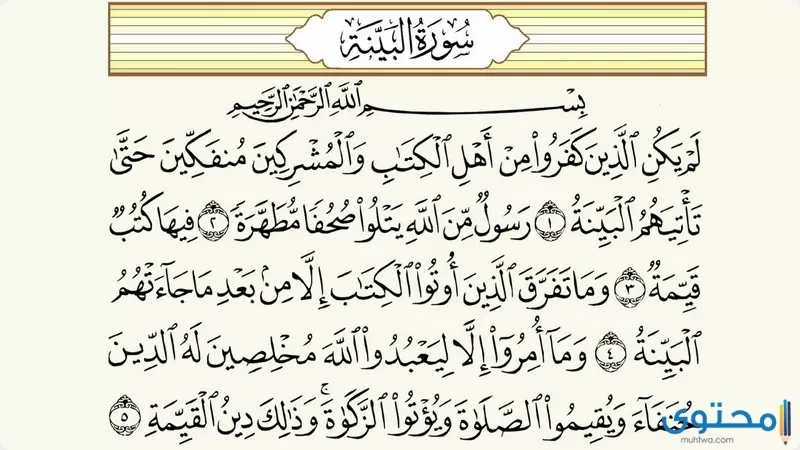 سُورَةُ البَيِّنَةِ
بِسْمِ اللَّهِ الرَّحْمَٰنِ الرَّحِيمِ
لَمْ يَكُنِ الَّذِينَ كَفَرُوا۟ مِنْ أَهْلِ الْكِتَابِ وَالْمُشْرِكِينَ مُنفَكِّينَ حَتَّىٰ
تَأْتِيَهُمُ الْبَيِّنَةُ ١ رَسُولٌ مِّنَ اللَّهِ يَتْلُوا۟ صُحُفًا مُّطَهَّرَةً ٢ فِيهَا كُتُبٌ
قَيِّمَةٌ ٣ وَمَا تَفَرَّقَ الَّذِينَ أُوتُوا۟ الْكِتَابَ إِلَّا مِنۢ بَعْدِ مَا جَآءَتْهُمُ
الْبَيِّنَةُ ٤ وَمَآ أُمِرُوٓا۟ إِلَّا لِيَعْبُدُوا۟ اللَّهَ مُخْلِصِينَ لَهُ الدِّينَ
حُنَفَآءَ وَيُقِيمُوا۟ الصَّلَوٰةَ وَيُؤْتُوا۟ الزَّكَوٰةَ ۚ وَذَٰلِكَ دِينُ الْقَيِّمَةِ ٥
محتوى
muhtwa.com